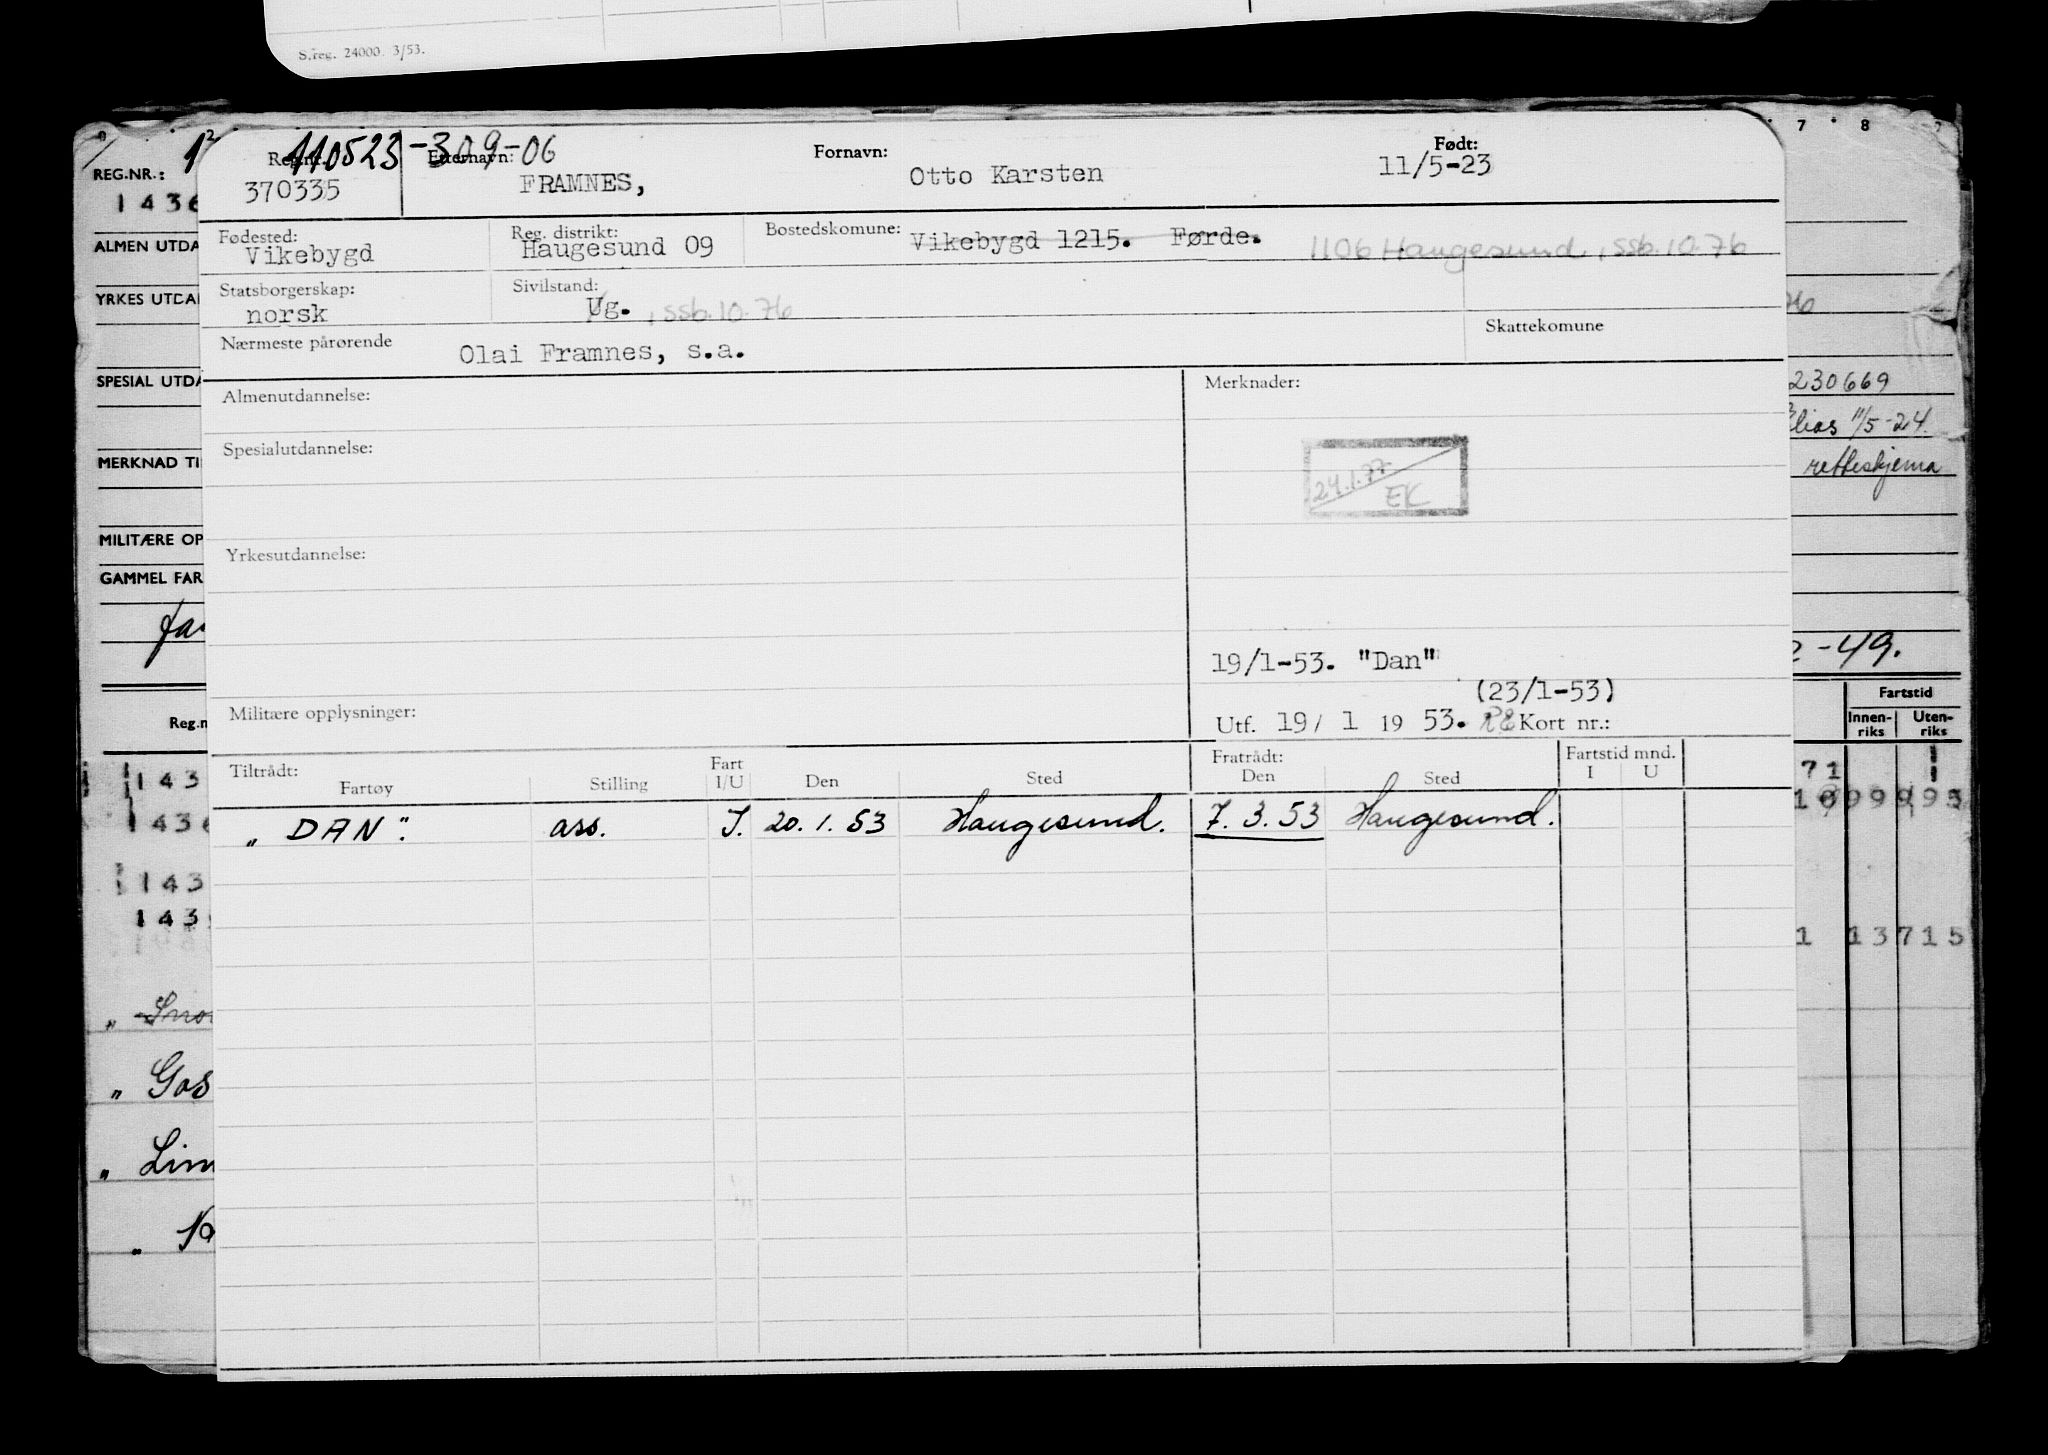 S.reg. 24000. 3/53.
7 8
REG.NR.:
1436
ALMEN UTDA
YRKES UTDA
SPESIAL UTDA
MERKNAD TI
MILITÆRE OP
GAMMEL FAR
Reg.nr. 110523-309-06 Etternavn: Fornavn: Født:
370335 FRAMNES, Otto Karsten 11/5-23
Fødested: Reg. distrikt: Bostedskomune:
Vikebygd Haugesund 09 Vikebygd 1215. Førde. 1106 Haugesund, ssb.10.76
Statsborgerskap: Sivilstand:
norsk Ug. , ssb.10.76
Nærmeste pårørende Olai Framnes, s.a. Skattekomune
Almenutdannelse: Merknader:
Spesialutdannelse:
24.1.77
EK
Yrkesutdannelse:
19/1-53. "Dan"
(23/1-53)
Militære opplysninger: Utf. 19/ 1 19 53. RE Kort nr.:
Tiltrådt: Fart Fratrådt: Fartstid mnd.
Fartøy Stilling I/U Den Sted Den Sted I U
„ DAN". ass. I. 20.1.53 Haugesund. 7.3.53 Haugesund.
230669
Elias 11/5-24.
retteskjema
-49.
Fartstid
Innen-riks Uten-riks
Reg.n
143
1436
143
143
71
1 13715
„ Gos
„ Lim